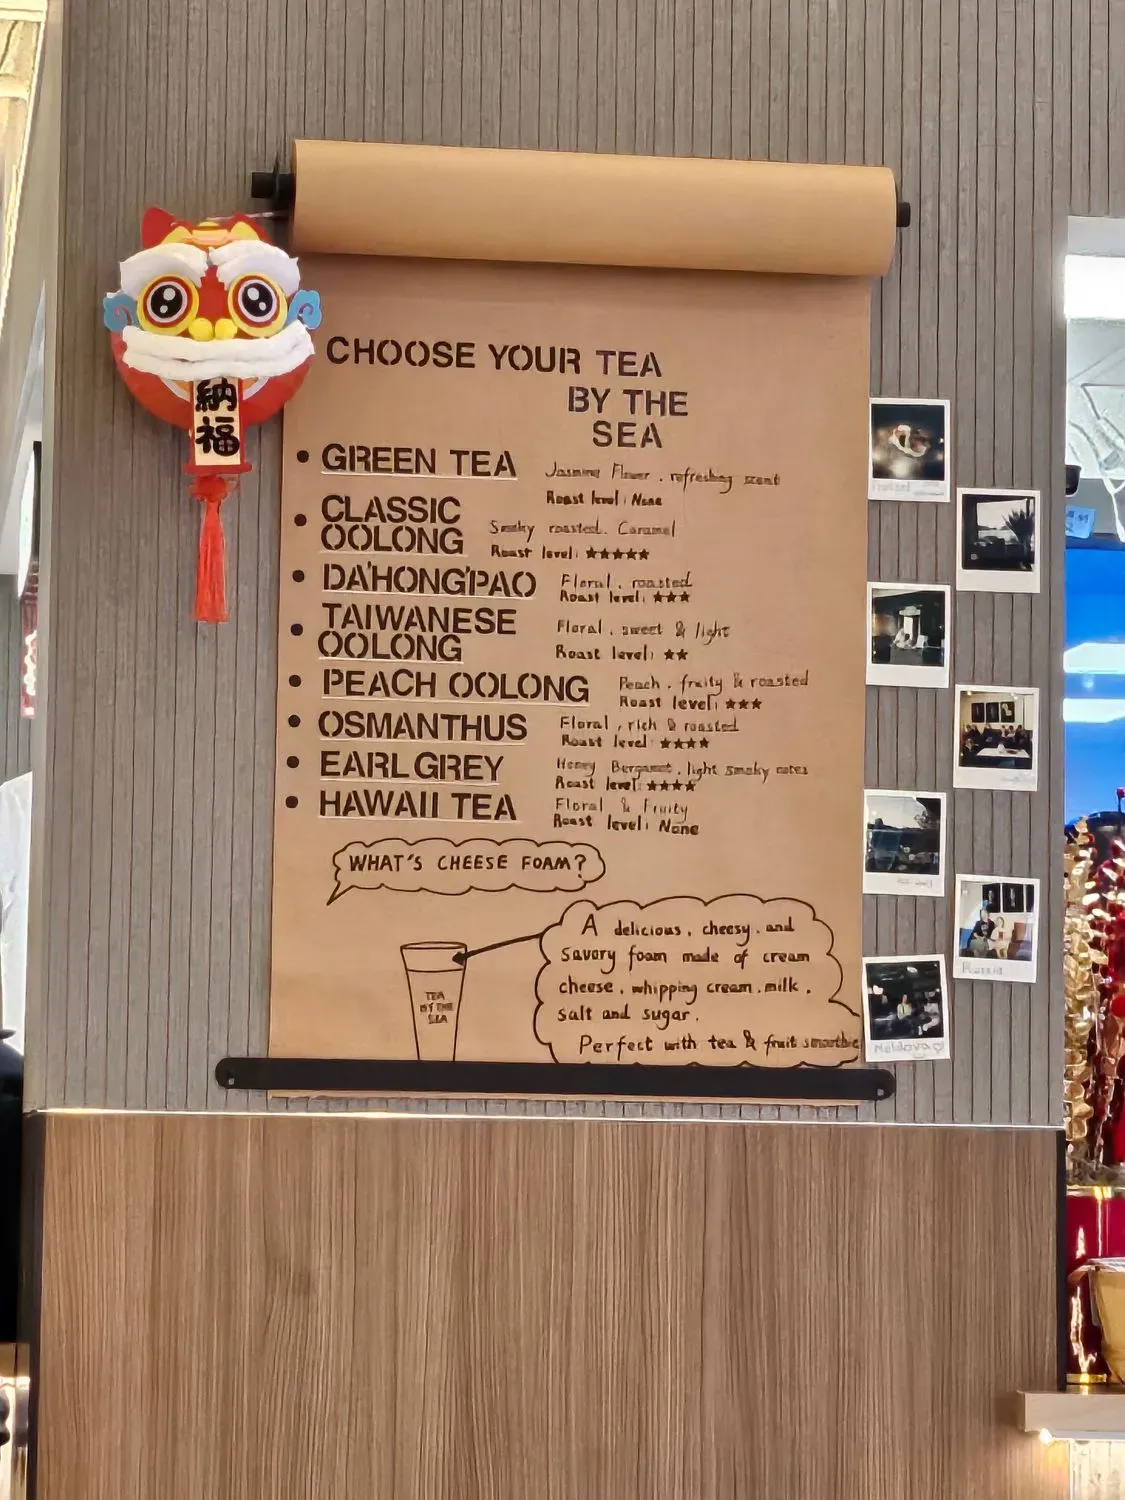 納福
CHOOSE YOUR TEA
BY THE
SEA
• GREEN TEA
Jasmine Flower, refreshing scent
Roast level: None
• CLASSIC
OOLONG
Smoky roasted, Caramel
Roast level: ★★★★★
• DA'HONG'PAO
Floral, roasted
Roast level: ★★★
• TAIWANESE
OOLONG
Floral, sweet & light
Roast level: ★★
• PEACH OOLONG
Peach, fruity & roasted
Roast level: ★★★
• OSMANTHUS
Floral, rich & roasted
Roast level: ★★★★
• EARL GREY
Honey Bergamot, light smoky notes
Roast level: ★★★★
• HAWAII TEA
Floral & Fruity
Roast level: None
WHAT'S CHEESE FOAM?
A delicious, cheesy, and
savory foam made of cream
cheese, whipping cream, milk,
salt and sugar.
Perfect with tea & fruit smoothie
TEA
BY THE
SEA